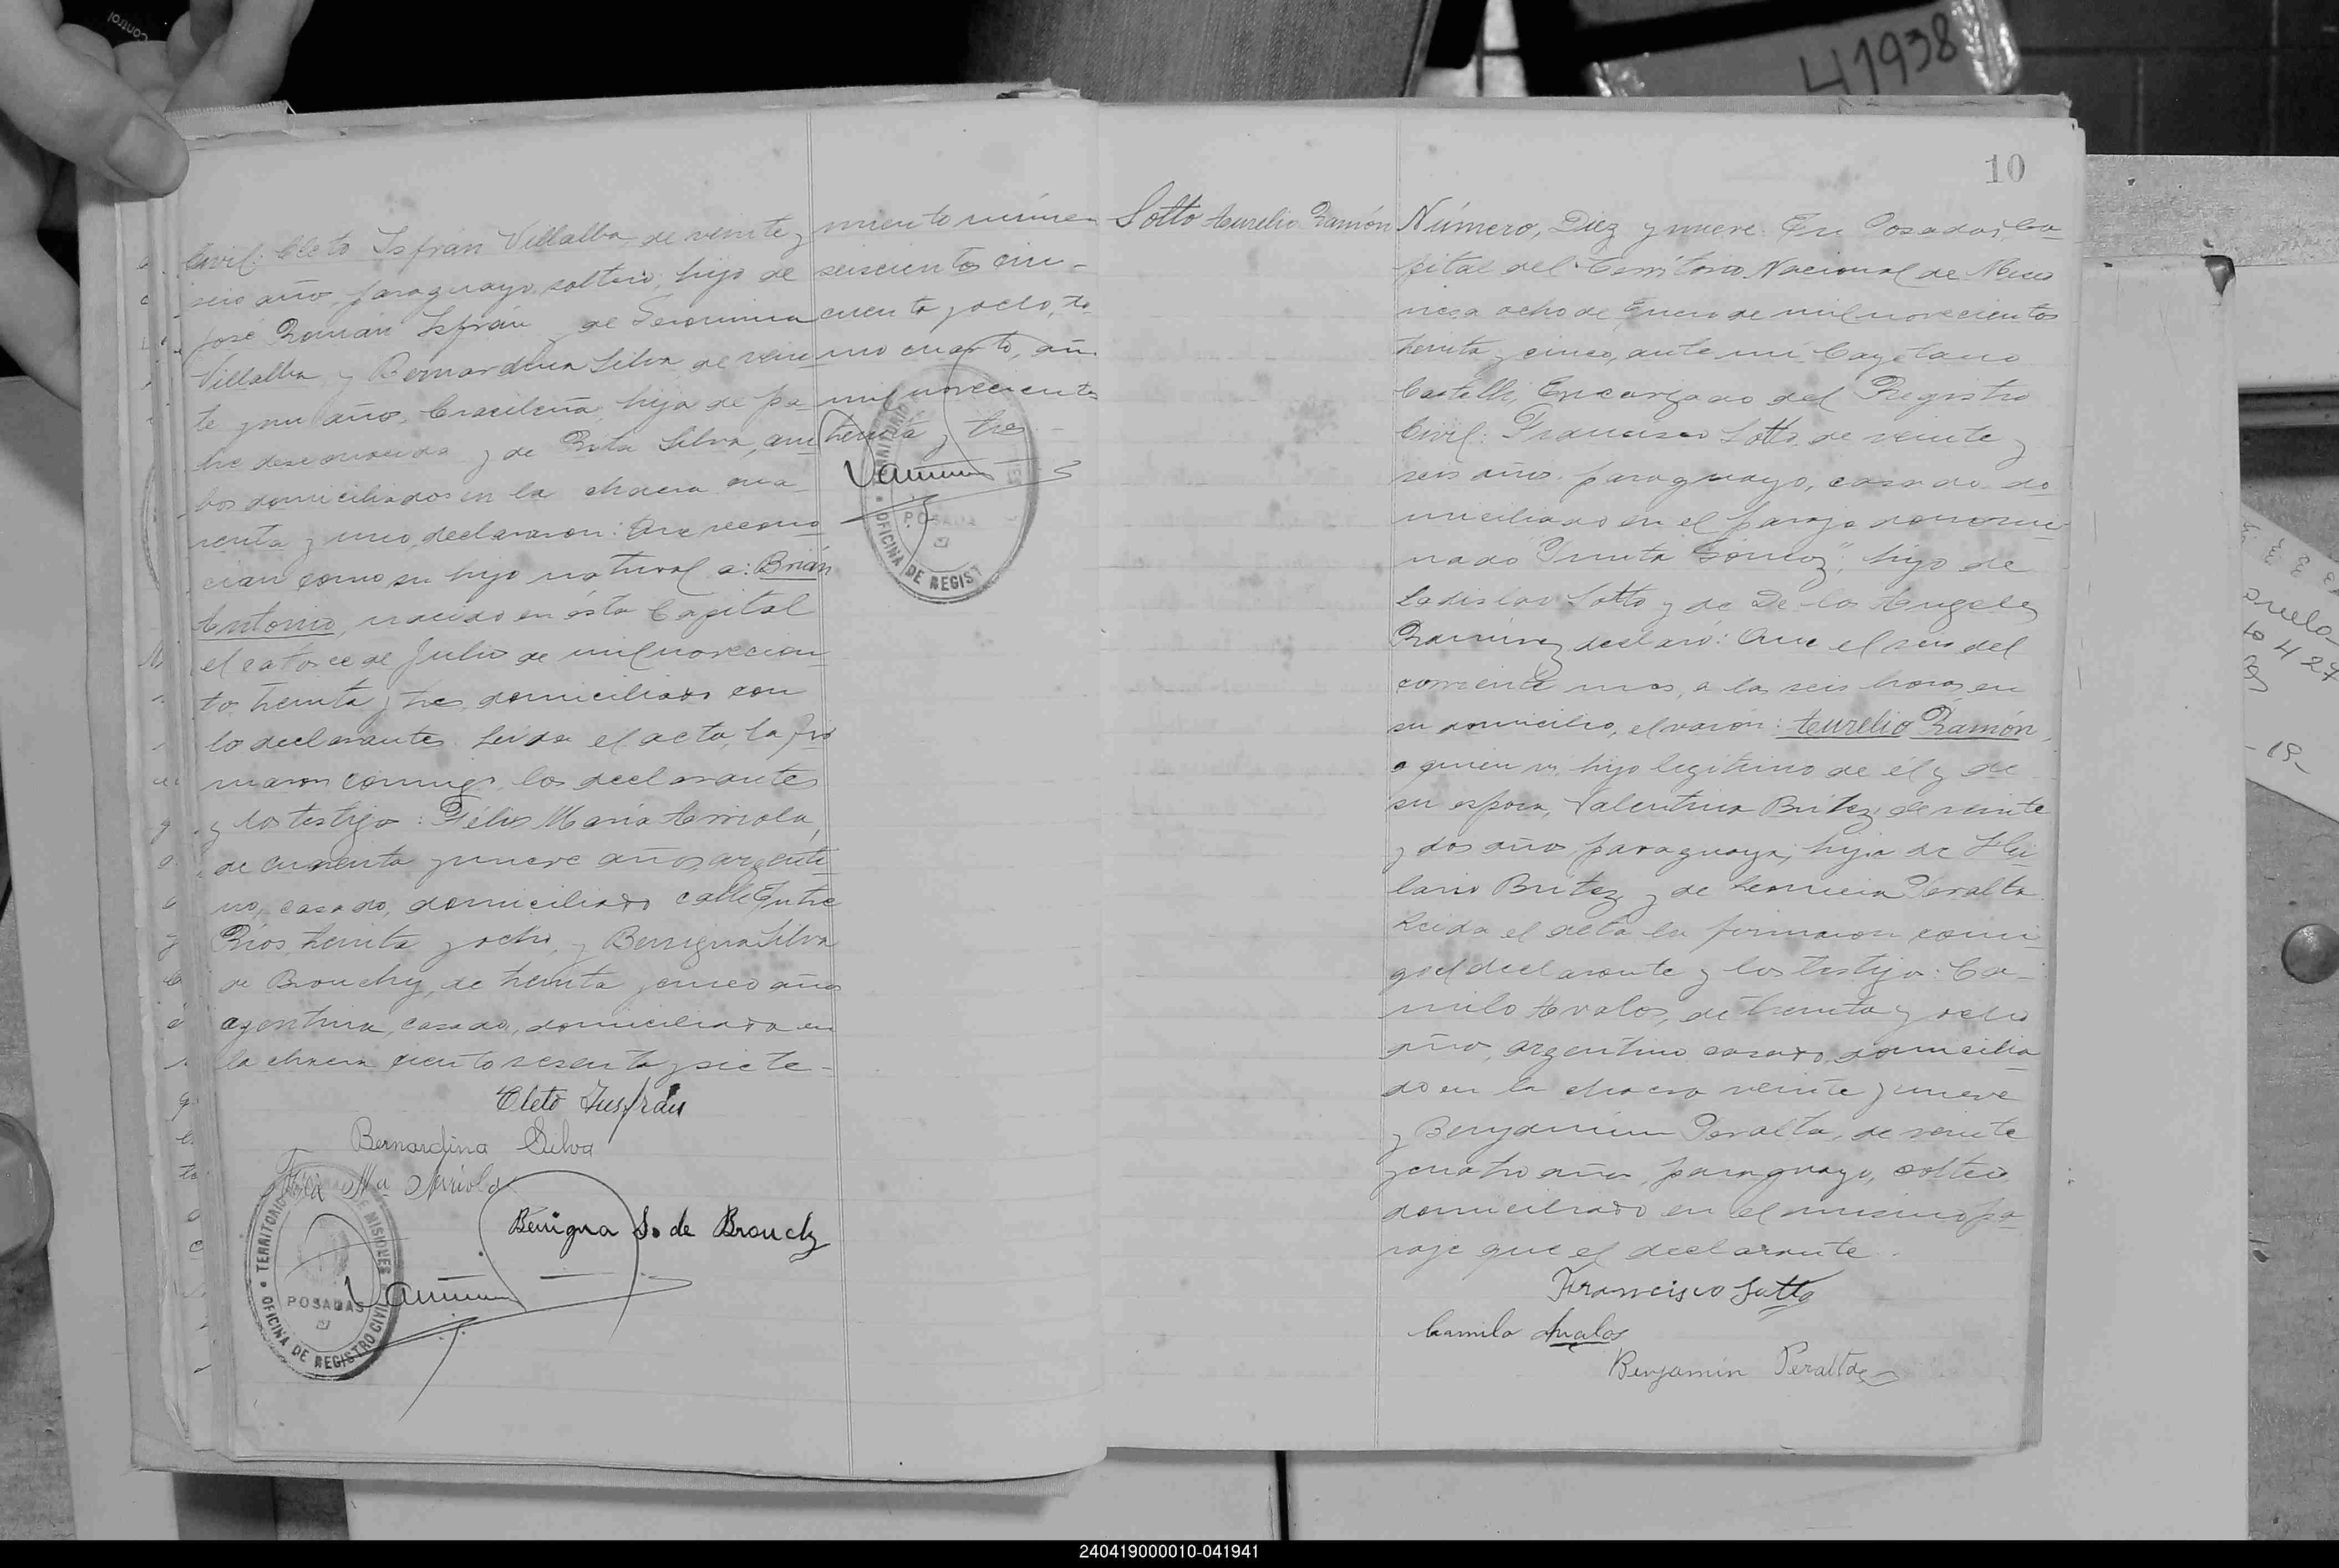 Civil: Cleto Isfrán Villalba, de veinte y
seis años, paraguayo, soltero, hijo de
José Román Isfrán y de Gerónima
Villalba y Bernardina Silva de vein
te y un años, brasileña, hija de pa
dre desconocido y de Rita Silva, am
bos domiciliados en la chacra cua
renta y uno, declararon: Que recono
cían como su hijo natural a: Brián
Antonio, nacido en ésta Capital
el catorce de Julio de mil novecien
tos treinta y tres, domiciliado con
los declarantes. Leída el acta, la fir
maron conmigo los declarantes
y los testigos: Félix María Arriola,
de cuarenta y nueve años, argenti
no, casado, domiciliado calle Entre
Ríos treinta y ocho, y Benigna Silva
de Brouchy, de treinta y cinco años
argentina, casada, domiciliada en
la chacra ciento sesenta y siete-
Cleto Insfrán
Bernardina Silva
Félix Ma Arriola
Benigna S. de Brouchy
TERRITORIO DE MISIONES
POSADAS
OFICINA DE REGISTRO CIVIL
miento número
seiscientos cin-
cuenta y ocho, to
mo cuarto, año
mil novecientos
treinta y tres
POSADA
OFICINA DE REGIST
10
Sotto Aurelio Ramón
Número, Diez y nueve. En Posadas, Ca-
pital del Territorio Nacional de Misio
nes, a ocho de Enero de mil novecientos
treinta y cinco, ante mí, Cayetano
Castelli, Encargado del Registro
Civil: Francisco Sotto, de veinte y
seis años, paraguayo, casado, do
miciliado en el paraje denomi-
nado "Punta Gómez", hijo de
Ladislao Sotto y de De los Angeles
Ramírez declaró: Que el seis del
corriente mes, a las seis horas en
su domicilio, el varón: Aurelio Ramón,
a quien vi, hijo legítimo de él y de
su esposa, Valentina Brítez, de veinte
y dos años, paraguaya, hija de Hi
lario Brítez y de Peralta
Leída el acta la firmaron conmi-
go el declarante y los testigos: Ca-
milo Avalos, de treinta y ocho
años, argentino, casado, domicilia
do en la chacra veinte y nueve
y Benjamín Peralta, de veinte
y cuatro años, paraguayo, soltero
domiciliado en el mismo pa
raje que el declarante.
Francisco Sotto
Camilo Avalos
Benjamín Peralta
41938
control
240419000010-041941